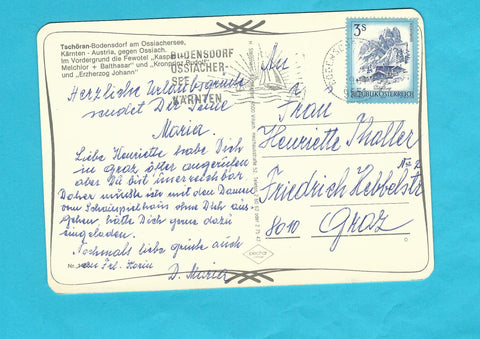 Tschöran-Bodensdorf am Ossiachersee,
Kärnten - Austria, gegen Ossiach.
Im Vordergrund die Fewotel "Kaspar +
Melchior + Balthasar" und "Kronprinz Rudolf"
und "Erzherzog Johann"
BODENSDORF
OSSIACHER-
SEE
KÄRNTEN
3S
REPUBLIK ÖSTERREICH
Herzliche Urlaubsgrüsse
sendet Dir Deine
Maria.
Liebe Henriette habe Dich
in Graz öfter angerufen
aber Du bist unerreichbar.
Daher mußte ich mit den Damen
vom Schauspielhaus ohne Dich aus-
gehen, hätte Dich gerne dazu
eingeladen.
Nochmals liebe Grüße auch
an Frl. Karin
D. Maria
Nr.
An
Frau
Henriette Thaller
Friedrich Hebbelstr
8010 Graz